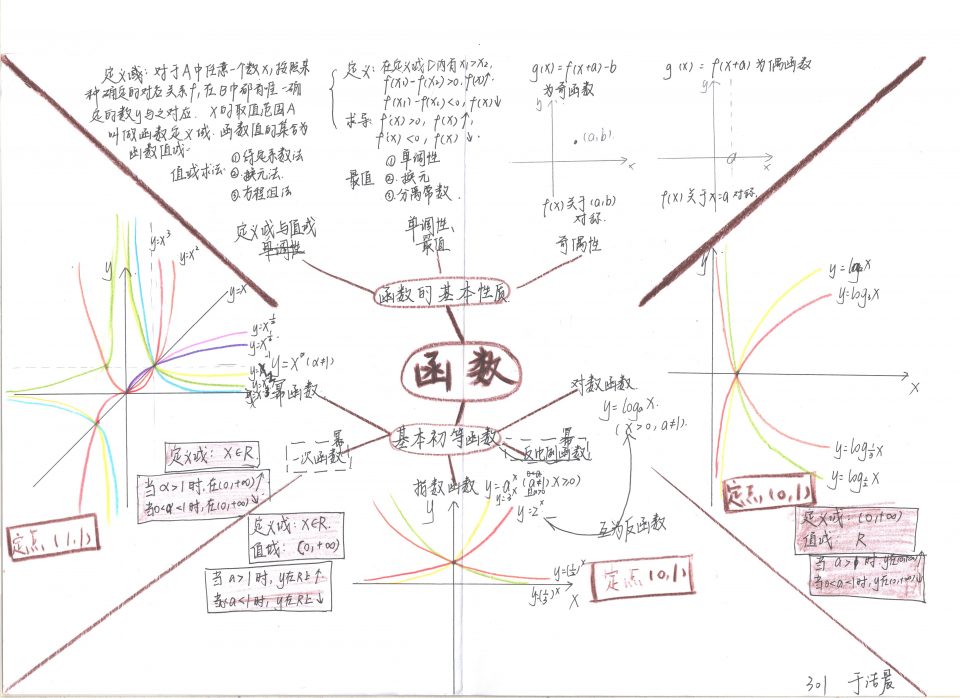 定义域：对于A中任意一个数x，按照某
种确定的对应关系f，在B中都有唯一确
定的数y与之对应．x的取值范围A
叫做函数定义域．函数值的集合为
函数值域．
值域求法：①待定系数法
②换元法．
③方程组法
定义域与值域
单调性
定义：在定义域D内有x₁>x₂,
f(x₁)-f(x₂)>0, f(x)↑.
f(x₁)-f(x₂)<0, f(x)↓
求导：f'(x)>0, f(x)↑,
f'(x)<0, f(x)↓.
最值
①单调性
②换元
③分离常数．
单调性、
最值
g(x)=f(x+a)-b
为奇函数
y
(a,b)
x
f(x)关于(a,b)
对称．
奇偶性
g(x)=f(x+a)为偶函数
y
a
x
f(x)关于x=a对称．
函数的基本性质
函数
基本初等函数
y
y=x³
y=x²
y=x
y=x^α(α≠1)
x
幂函数
定义域：x∈R.
当α>1时,在(0,+∞)↑
当0<α<1时,在(0,+∞)↓
定点(1,1)
幂
一次函数
幂
反比例函数
指数函数
y=a^x
y=3^x
y=2^x
y
y=(1/2)^x
y=(1/3)^x
x
定义域：x∈R.
值域：(0,+∞)
当a>1时,y在R上↑
当0<a<1时,y在R上↓
定点(0,1)
互为反函数
对数函数
y=logₐx.
(x>0, a≠1).
y
y=log₂x
y=log₃x
x
y=log⅓x
y=log½x
定点,(0,1)
定义域：(0,+∞)
值域：R
当a>1时,y在(0,+∞)↑
当0<a<1时,y在(0,+∞)↓
301 于浩晨